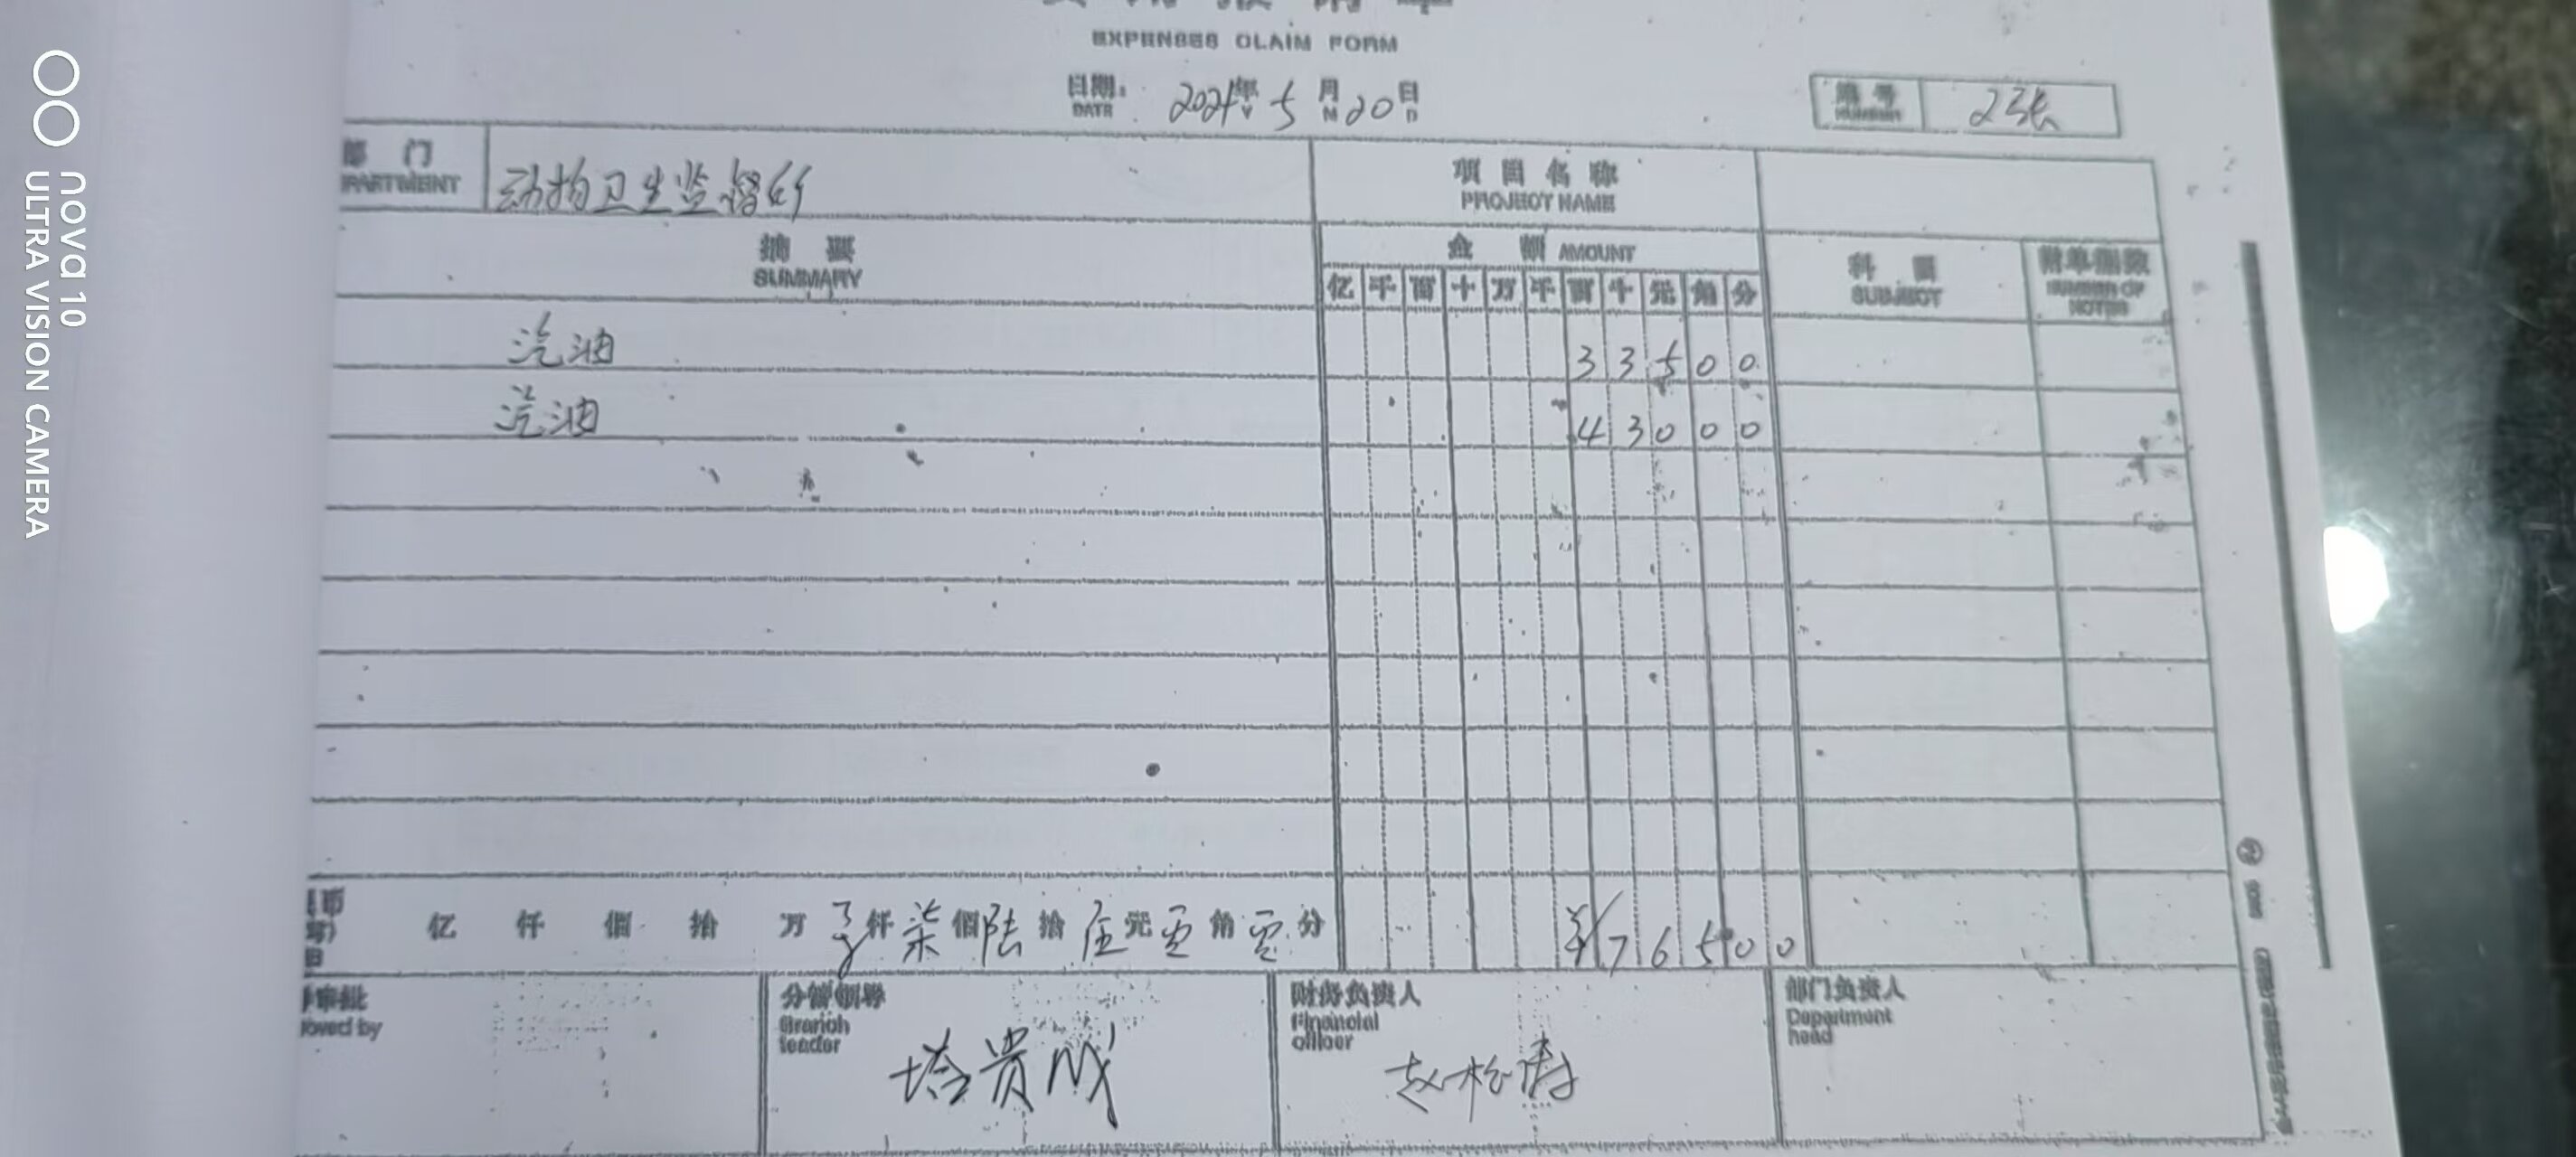 EXPENSES CLAIM FORM
日期: 2021年 5 月 20 日
DATE Y M D
编号 2张
NUMBER
部 门 动物卫生监督所 项目名称
PARTMENT PROJECT NAME
摘 要 金 额 AMOUNT 科 目 附单据数
SUMMARY 亿 千 百 十 万 千 百 十 元 角 分 SUBJECT NUMBER OF NOTES
汽油 3 3 5 0 0
汽油 4 3 0 0 0
亿 仟 佰 拾 万 仟 柒 佰 陆 拾 伍 元 零 角 零 分 ¥ 7 6 5 0 0
审批 分管领导 财务负责人 部门负责人
oved by Branch leader Financial officer Department head
塔贵成 赵松涛
nova 10
ULTRA VISION CAMERA